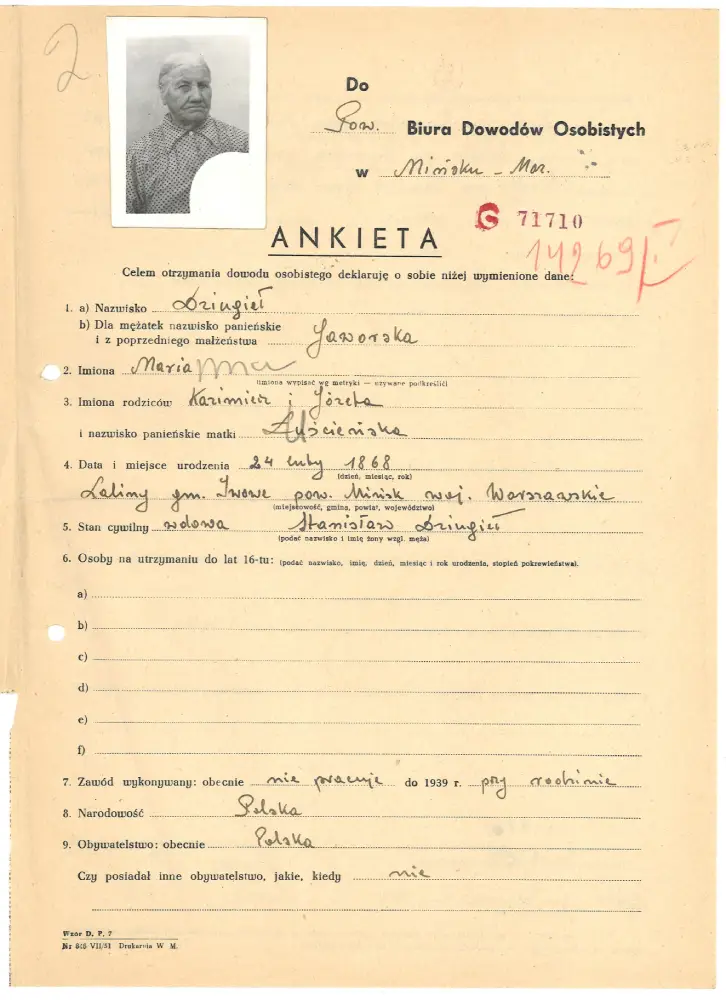 2.
Do
Pow. Biura Dowodów Osobistych
w Mińsku - Maz.
S 71710
ANKIETA
14269/I
Celem otrzymania dowodu osobistego deklaruję o sobie niżej wymienione dane:
1. a) Nazwisko Dzingieł
b) Dla mężatek nazwisko panieńskie
i z poprzedniego małżeństwa Jaworska
2. Imiona Maria
(imiona wypisać wg metryki — używane podkreślić)
3. Imiona rodziców Kazimierz i Józefa
i nazwisko panieńskie matki
4. Data i miejsce urodzenia 24 luty 1868
(dzień, miesiąc, rok)
Laliny gm. Iwowe pow. Mińsk woj. Warszawskie
(miejscowość, gmina, powiat, województwo)
5. Stan cywilny wdowa Stanisław Dzingieł
(podać nazwisko i imię żony wzgl. męża)
6. Osoby na utrzymaniu do lat 16-tu: (podać nazwisko, imię, dzień, miesiąc i rok urodzenia, stopień pokrewieństwa).
a)
b)
c)
d)
e)
f)
7. Zawód wykonywany: obecnie nie pracuje do 1939 r. przy rodzinie
8. Narodowość Polska
9. Obywatelstwo: obecnie Polska
Czy posiadał inne obywatelstwo, jakie, kiedy nie
Wzór D. P. 7
VII/51 Drukarnia W. M.